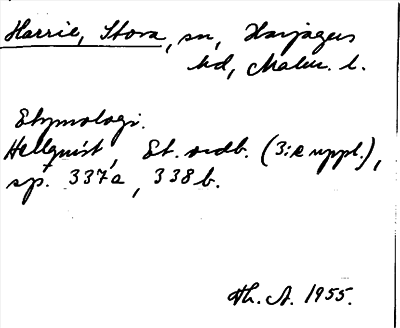 Harrie, Stora, sn, Harjagers
hd, Malm. l.
Etymologi.
Hellquist, Et. ordb. (3:e uppl.),
sp. 337a, 338b.
Th. A. 1955.